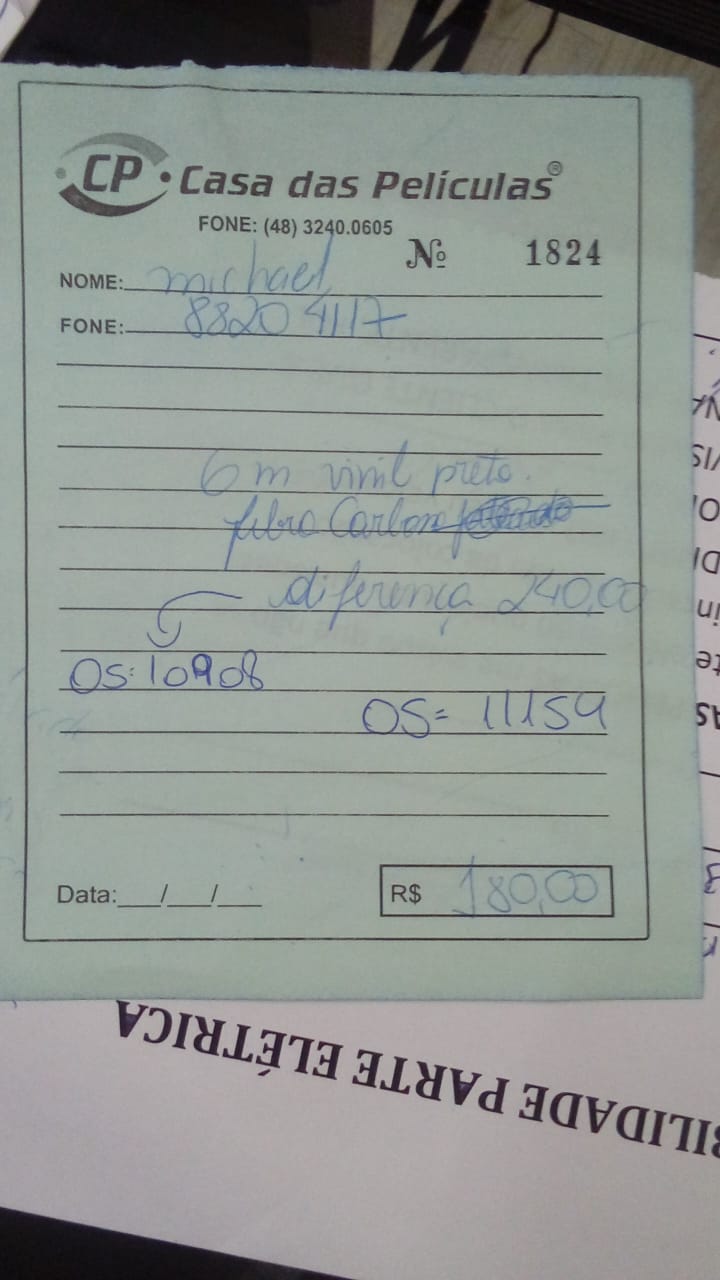 CP Casa das Películas®
FONE: (48) 3240.0605
Nº 1824
NOME: michael
FONE: 88204117
6 m vinil preto.
fibra Carbono
diferença 240,00
OS: 10908
OS= 11154
Data:___/___/___ R$ 180,00
BILIDADE PARTE ELÉTRICA